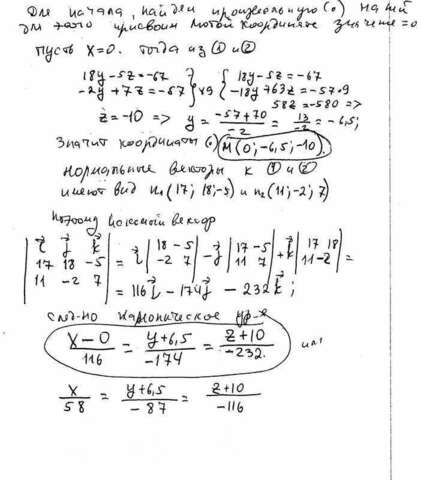 Для начала, найдем произвольную (•) на ней
для этого присвоим любой координате значение =0
пусть x=0. тогда из ① и ②
18y-5z=-67 } ×9 { 18y-5z=-67
-2y+7z=-57 -18y+63z=-57·9
58z=-580 =>
z=-10 => y = (-57+70)/(-2) = 13/(-2) = -6,5;
Значит координаты (•) M(0;-6,5;-10)
Нормальные векторы к ① и ②
имеют вид n₁(17;18;-5) и n₂(11;-2;7)
поэтому искомый вектор
| i j k |
| 17 18 -5 | = i |18 -5; -2 7| - j |17 -5; 11 7| + k |17 18; 11 -2| =
| 11 -2 7 | = 116i - 174j - 232k;
след-но каноническое ур-е
(x-0)/116 = (y+6,5)/-174 = (z+10)/-232. или
x/58 = (y+6,5)/-87 = (z+10)/-116